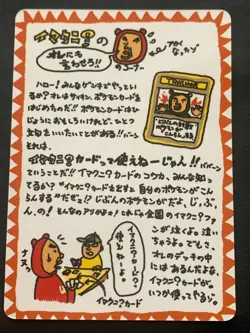 イマクニ?の
オレにも
言わせろ!!
のコーナー
ハロー!みんなゲンキでやってい
るか?オレはサイキン、ポケモンカードを
はじめたんだ!!ポケモンカードは
とてもおもしろいんだけど、ひとつ
文句をいいたいことがある!!
それは、
イマクニ?カードって使えねーじゃん!!
ということだ。イマクニ?カードのコウカ、みんな知っ
てるか?"イマクニ?カードを出すと自分のポケモンがこんら
んする"だぜ!?じぶんのポケモンがだよ、じ、ぶ、
ん、の!そんなのアリかよォ!これじゃ全国のイマクニ?ファ
ンが泣くよ。泣い
ちゃうよ。でしさ、
オレのデッキの中
には
あるんだよな、
イマクニ?カードが。
いつか使ってやるゾ。
イマクニ?カード